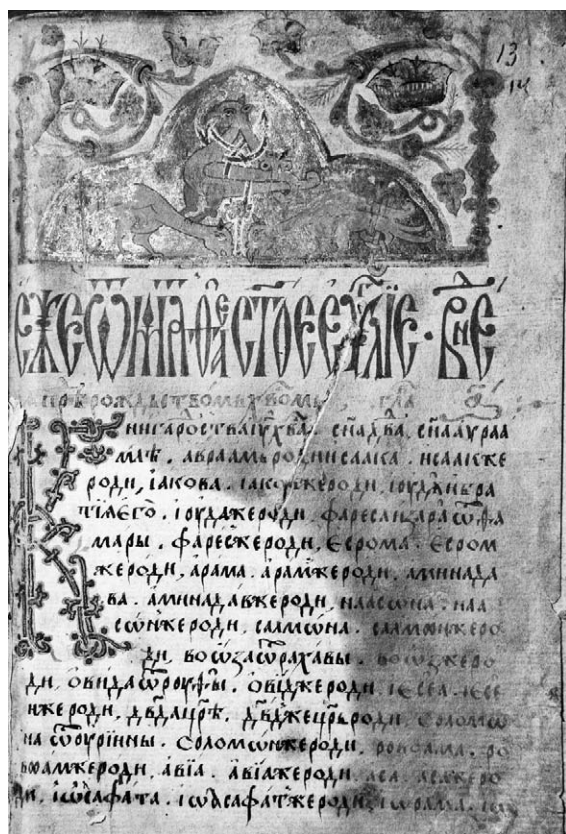 13
ЕЖЕ Ѿ МАѲЕА СТОЕ ЕѴЛІЕ · В НЕ
прѣ рождьствомь хвомь гла а
Книга роства іу хва . сна двда, сна аураа
млѣ . авраамь роди исаака . исаакже
роди, іакова . іаковжероди, іудѫ ибра
тіѫ его . іудажероди, фареса изара ѿ ѳа
мары . фаресжероди, есрома . есром
жероди, арама . арамжероди, аминада
ва . аминадавжероди, наассѡна . наа
ссѡнжероди, салмѡна . салмѡнжеро
ди, воѡза ѿ рахавы . воѡзжеро
ди, ѡвида ѿ роуѳы . ѡвиджероди іесеа . іесе
ижероди, двда црѣ . двджецрь роди соломѡ
на ѿ оуріины . соломѡнжероди, ровоама . ро
воамжероди, авіа . авіажероди аса . асажеро
ди, іѡсафата . іѡсафатжероди, іѡрама . іѡ